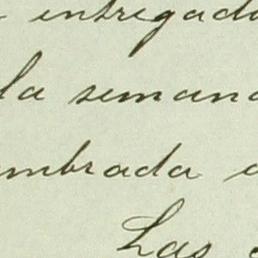 entregada
la semana
mbrada
Las